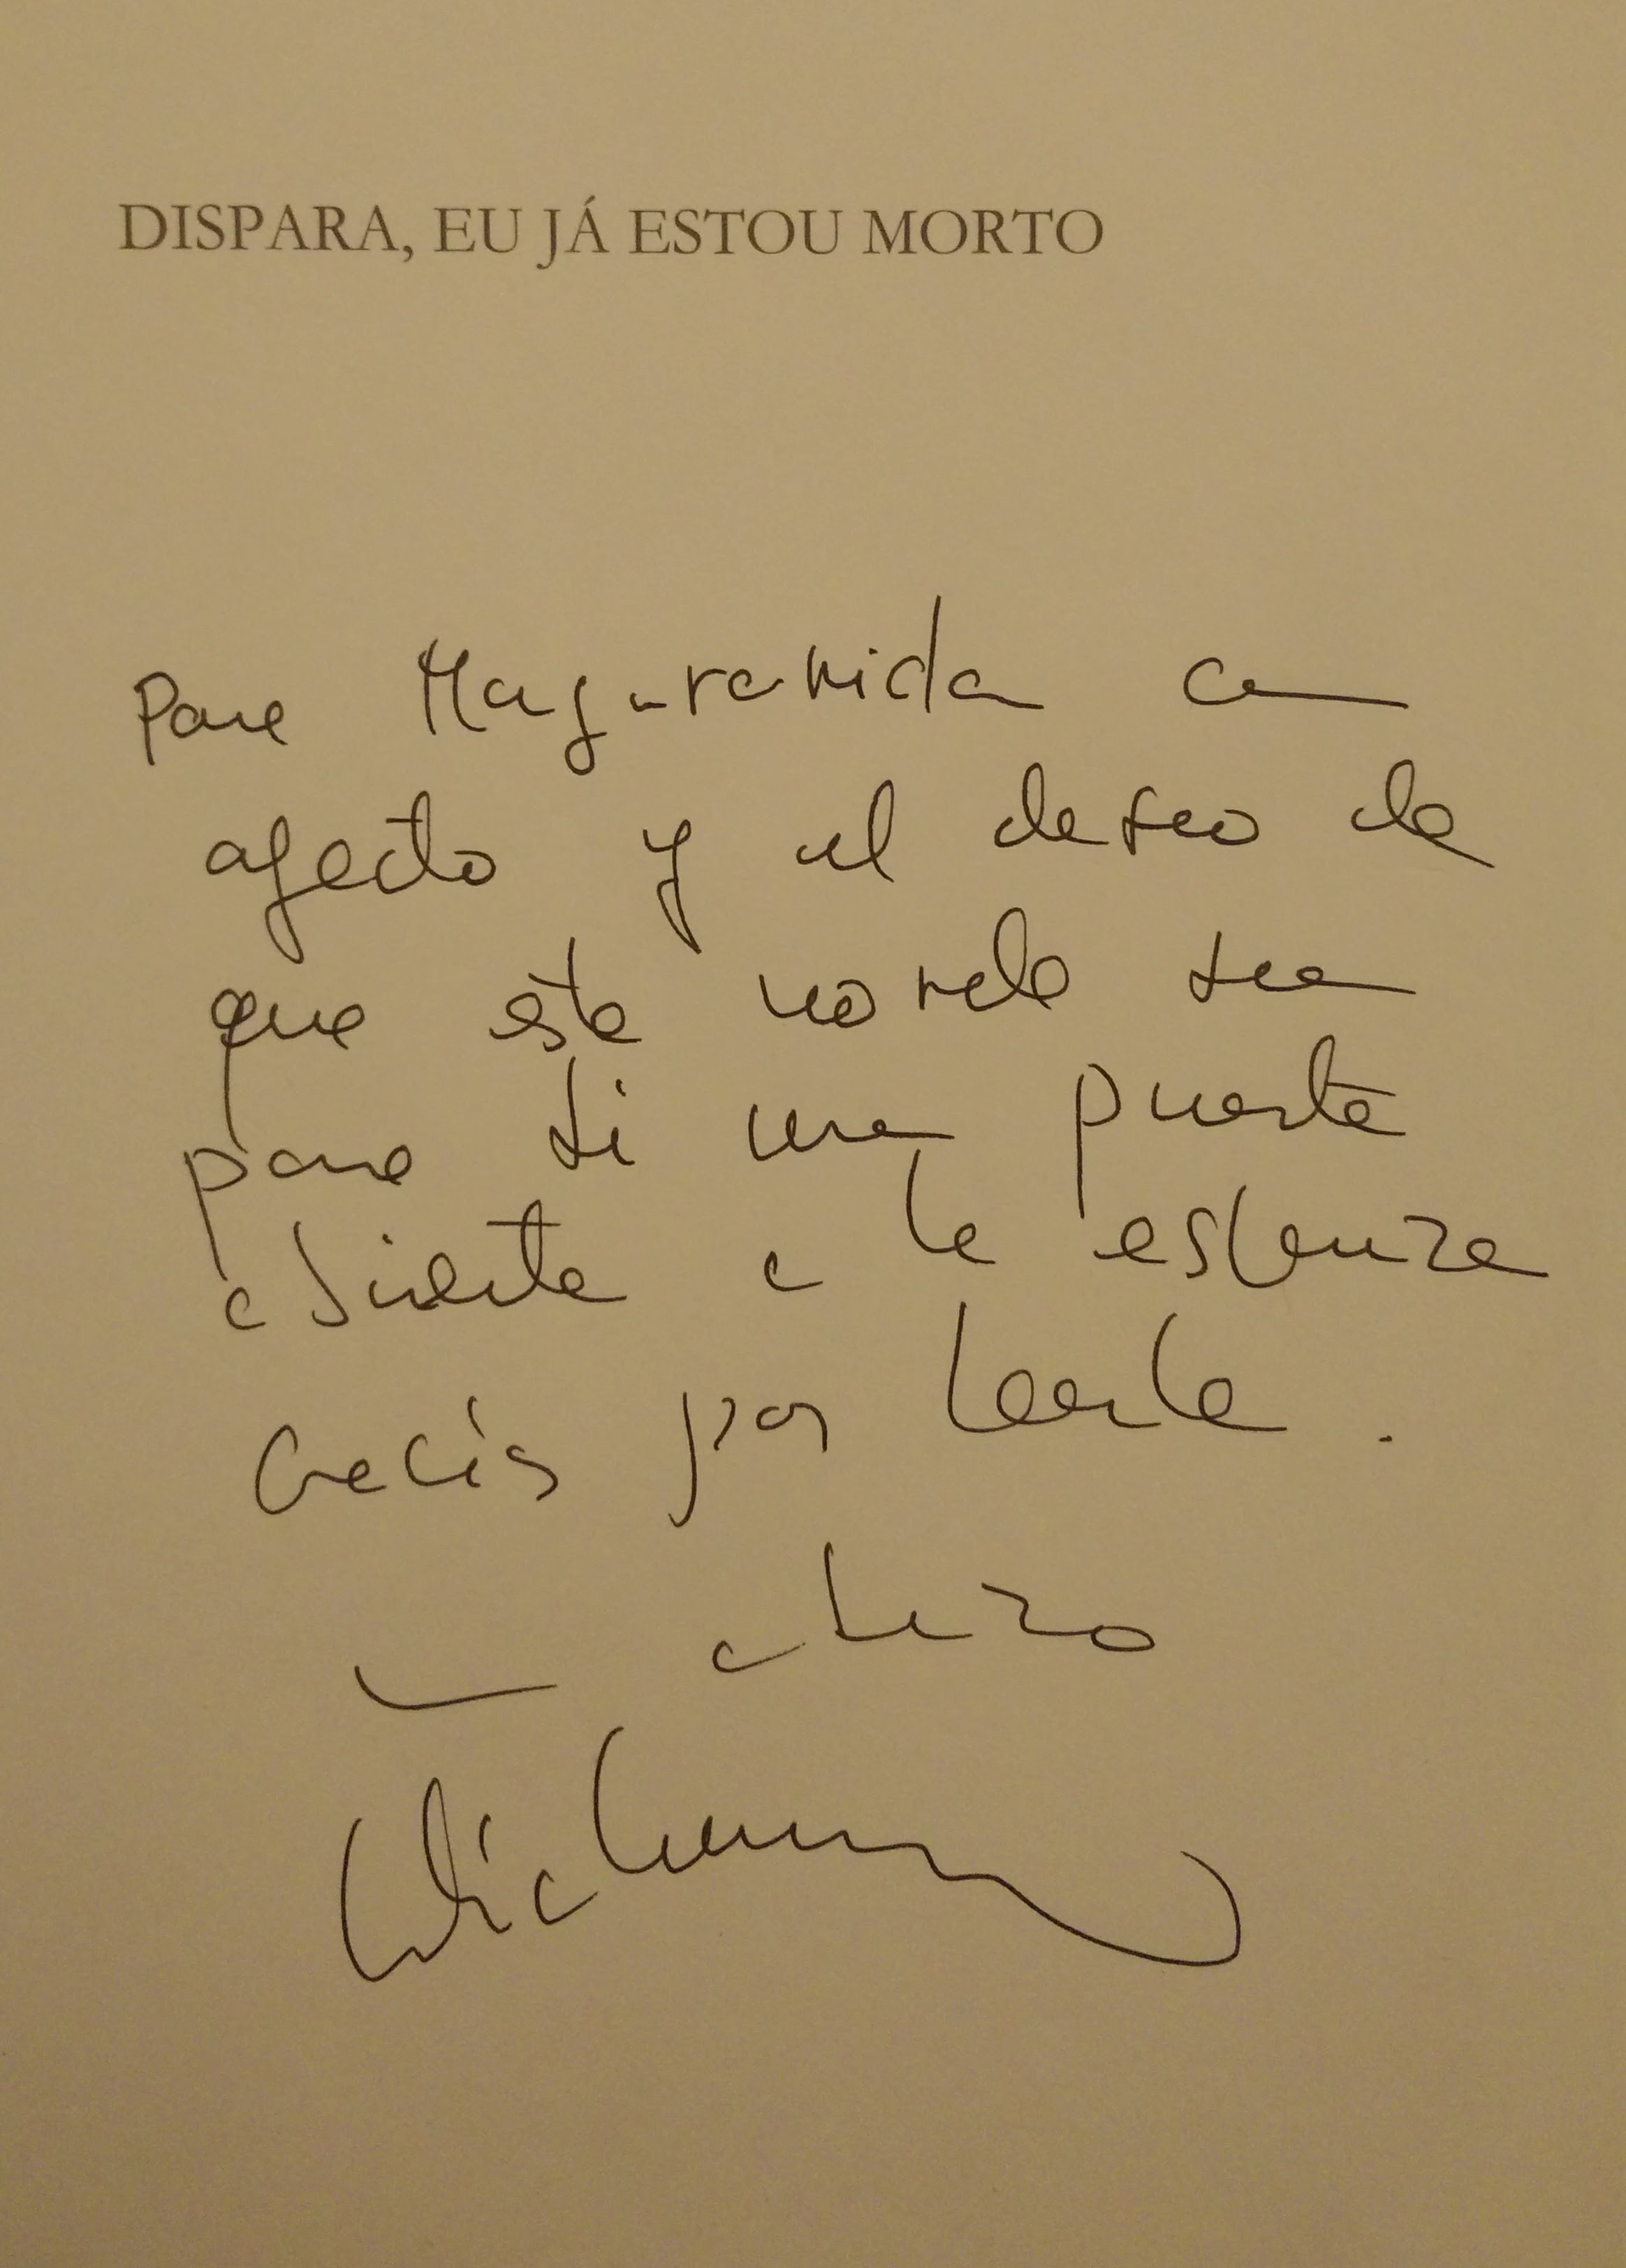 DISPARA, EU JÁ ESTOU MORTO
Para con
afecto y el deseo de
que esta novela sea
para ti una puerta
abierta a la esperanza
Gracias por leerla.
Un abrazo